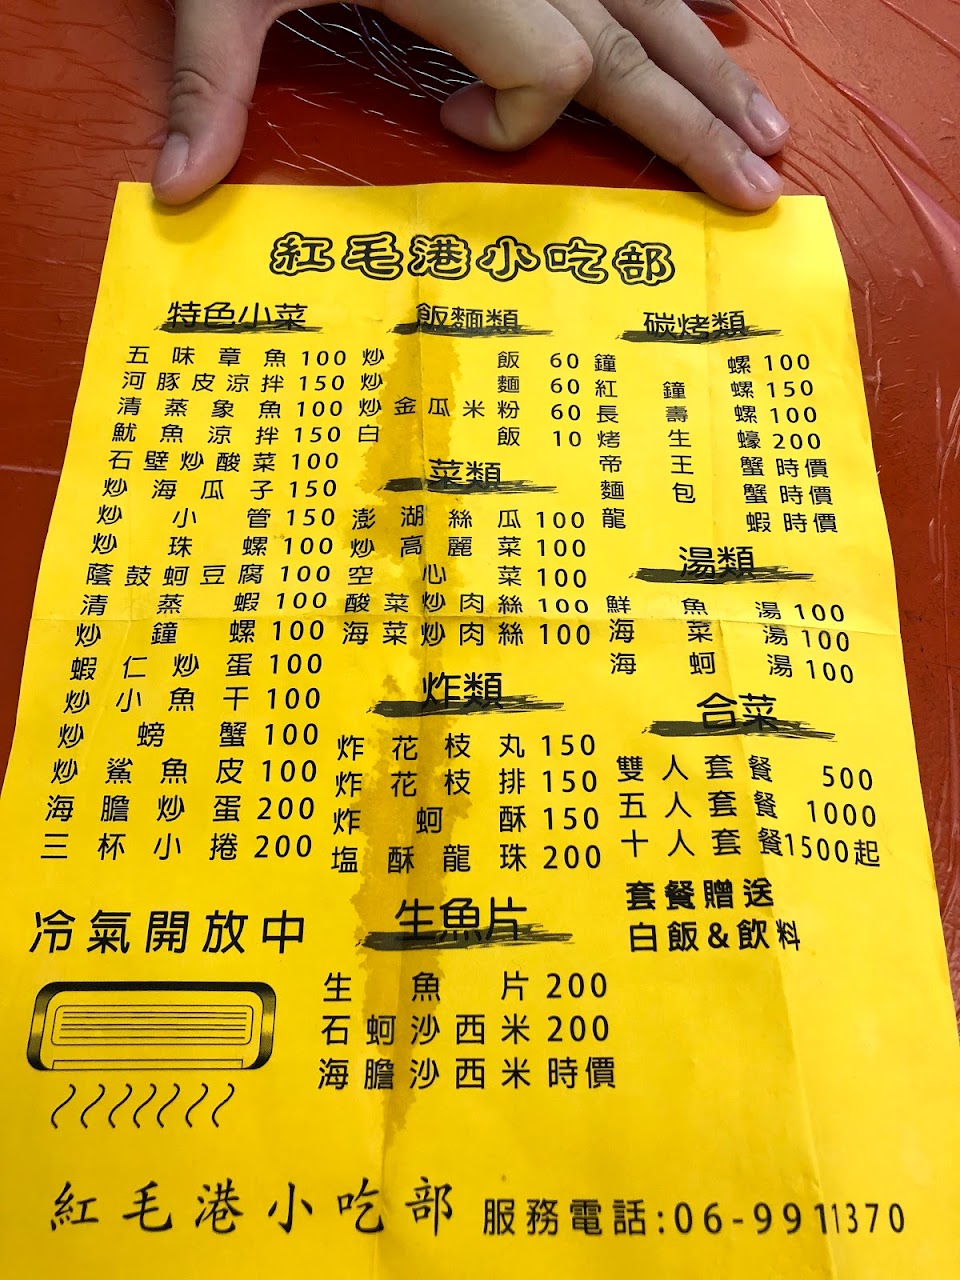 紅毛港小吃部
特色小菜
五味章魚 100
河豚皮涼拌 150
清蒸象魚 100
魷魚涼拌 150
石壁炒酸菜 100
炒海瓜子 150
炒小管 150
炒珠螺 100
蔭鼓蚵豆腐 100
清蒸蝦 100
炒鐘螺 100
蝦仁炒蛋 100
炒小魚干 100
炒螃蟹 100
炒鯊魚皮 100
海膽炒蛋 200
三杯小捲 200
冷氣開放中
飯麵類
炒飯 60
炒麵 60
炒金瓜米粉 60
白飯 10
菜類
澎湖絲瓜 100
炒高麗菜 100
空心菜 100
酸菜炒肉絲 100
海菜炒肉絲 100
炸類
炸花枝丸 150
炸花枝排 150
炸蚵酥 150
塩酥龍珠 200
生魚片
生魚片 200
石蚵沙西米 200
海膽沙西米 時價
碳烤類
鐘螺 100
紅鐘螺 150
長壽螺 100
烤生蠔 200
帝王蟹 時價
麵包蟹 時價
龍蝦 時價
湯類
鮮魚湯 100
海菜湯 100
海蚵湯 100
合菜
雙人套餐 500
五人套餐 1000
十人套餐 1500起
套餐贈送
白飯&飲料
紅毛港小吃部 服務電話:06-9911370